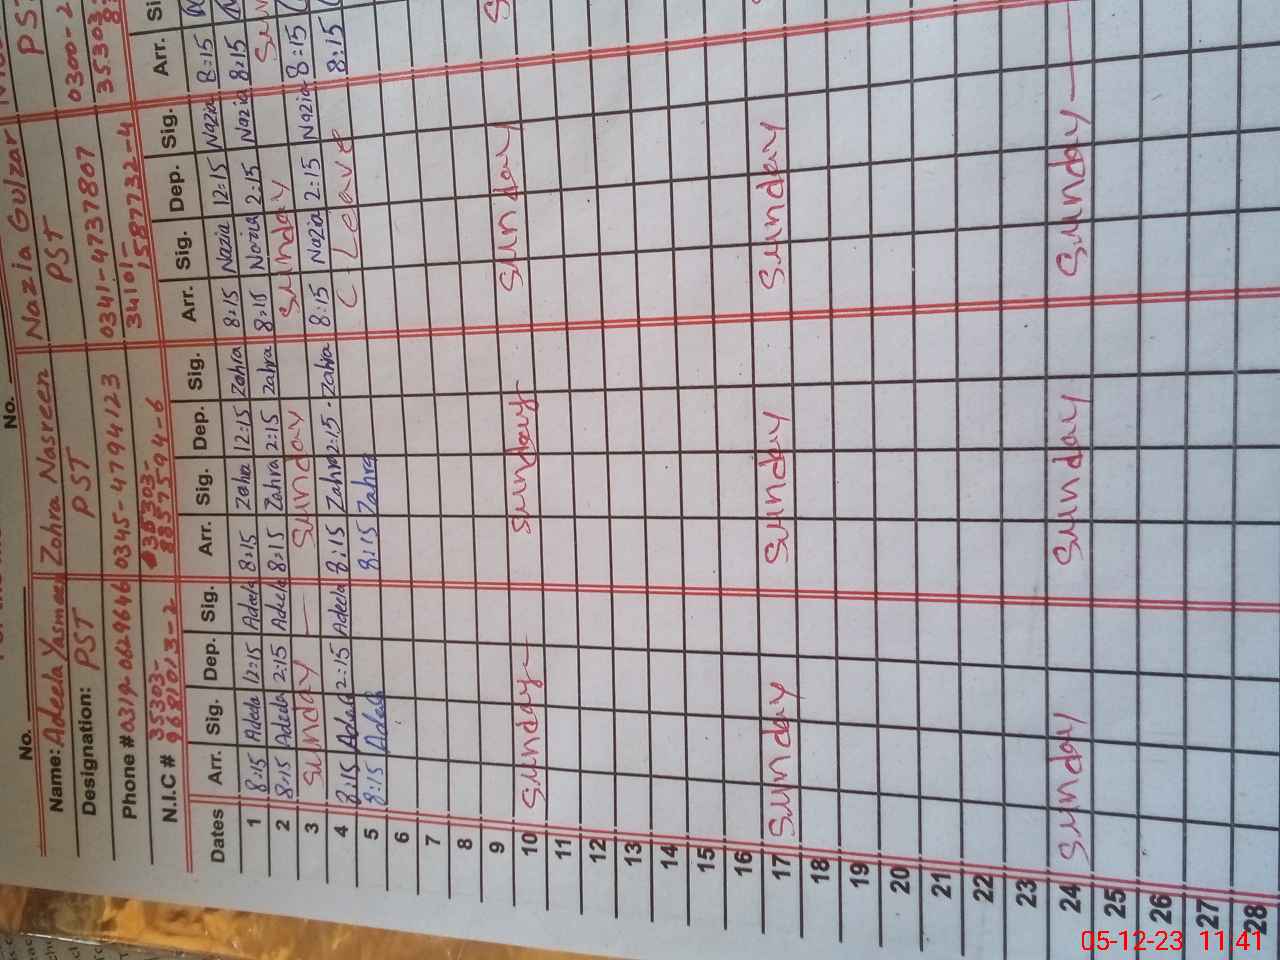 No. No.
Name: Adeela Yasmeen Zohra Nasreen Nazia Gulzar
Designation: PST PST PST PS
Phone # 0319-0629646 0345-4794123 0341-4737807 0300-2
N.I.C # 35303- 35303- 34101- 35303
9681013-2 8857594-6 1587732-4
Dates Arr. Sig. Dep. Sig. Arr. Sig. Dep. Sig. Arr. Sig. Dep. Sig. Arr. Si
1 8:15 Adeela 12:15 Adeela 8:15 Zahra 12:15 Zahra 8:15 Nazia 12:15 Nazia 8:15
2 8:15 Adeela 2:15 Adeela 8:15 Zahra 2:15 Zahra 8:15 Nazia 2:15 Nazia 8:15
3 Sunday Sunday Sunday Su
4 8:15 Adeela 2:15 Adeela 8:15 Zahra 2:15 Zahra 8:15 Nazia 2:15 Nazia 8:15
5 8:15 Adeela 8:15 Zahra C Leave 8:15
6
7
8
9
10 Sunday Sunday Sunday S
11
12
13
14
15
16
17 Sunday Sunday Sunday
18
19
20
21
22
23
24 Sunday Sunday Sunday
25
26
27
28
05-12-23 11:41